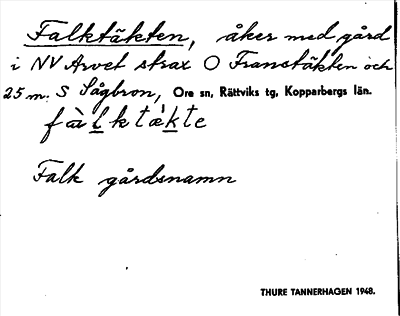 Falktäkten, åker med gård
i NV Arvet strax O Franstäkten och
25 m. S Sågbron, Ore sn, Rättviks tg, Kopparbergs län.
fàlktæ̀kte
Falk gårdsnamn
THURE TANNERHAGEN 1948.